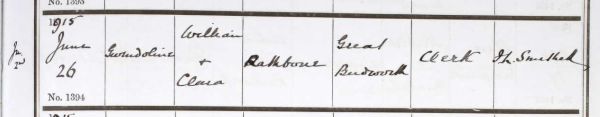 No. 1393
1915
June
26
Gwendoline
William
+
Clara
Rathbone
Great
Budworth
Clerk
No. 1394